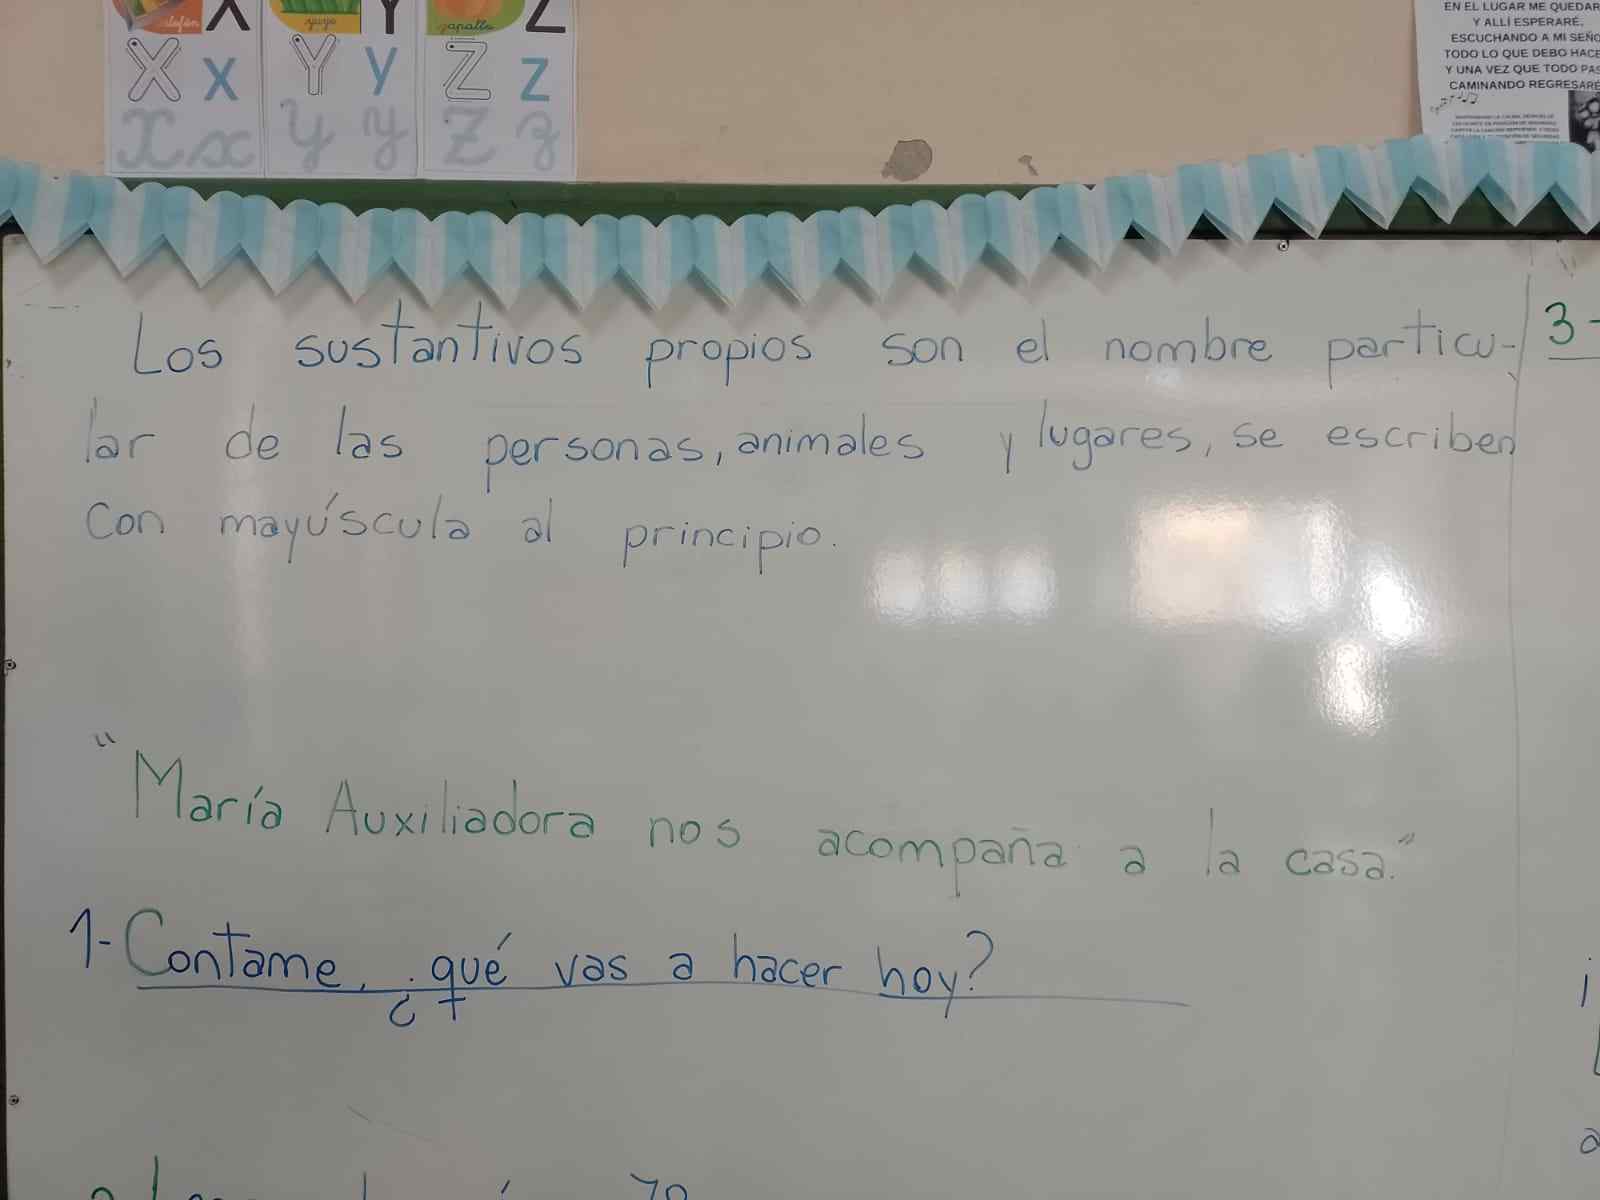 X
Y
Z
X x
Y y
Z z
X x
Y y
Z z
yuyo
zapallo
EN EL LUGAR ME QUEDAR
Y ALLÍ ESPERARÉ,
ESCUCHANDO A MI SEÑO
TODO LO QUE DEBO HACE
Y UNA VEZ QUE TODO PAS
CAMINANDO REGRESARÉ
Los sustantivos propios son el nombre particu-
lar de las personas, animales y lugares, se escriben
con mayúscula al principio.
"María Auxiliadora nos acompaña a la casa."
1- Contame, ¿qué vas a hacer hoy?
3-